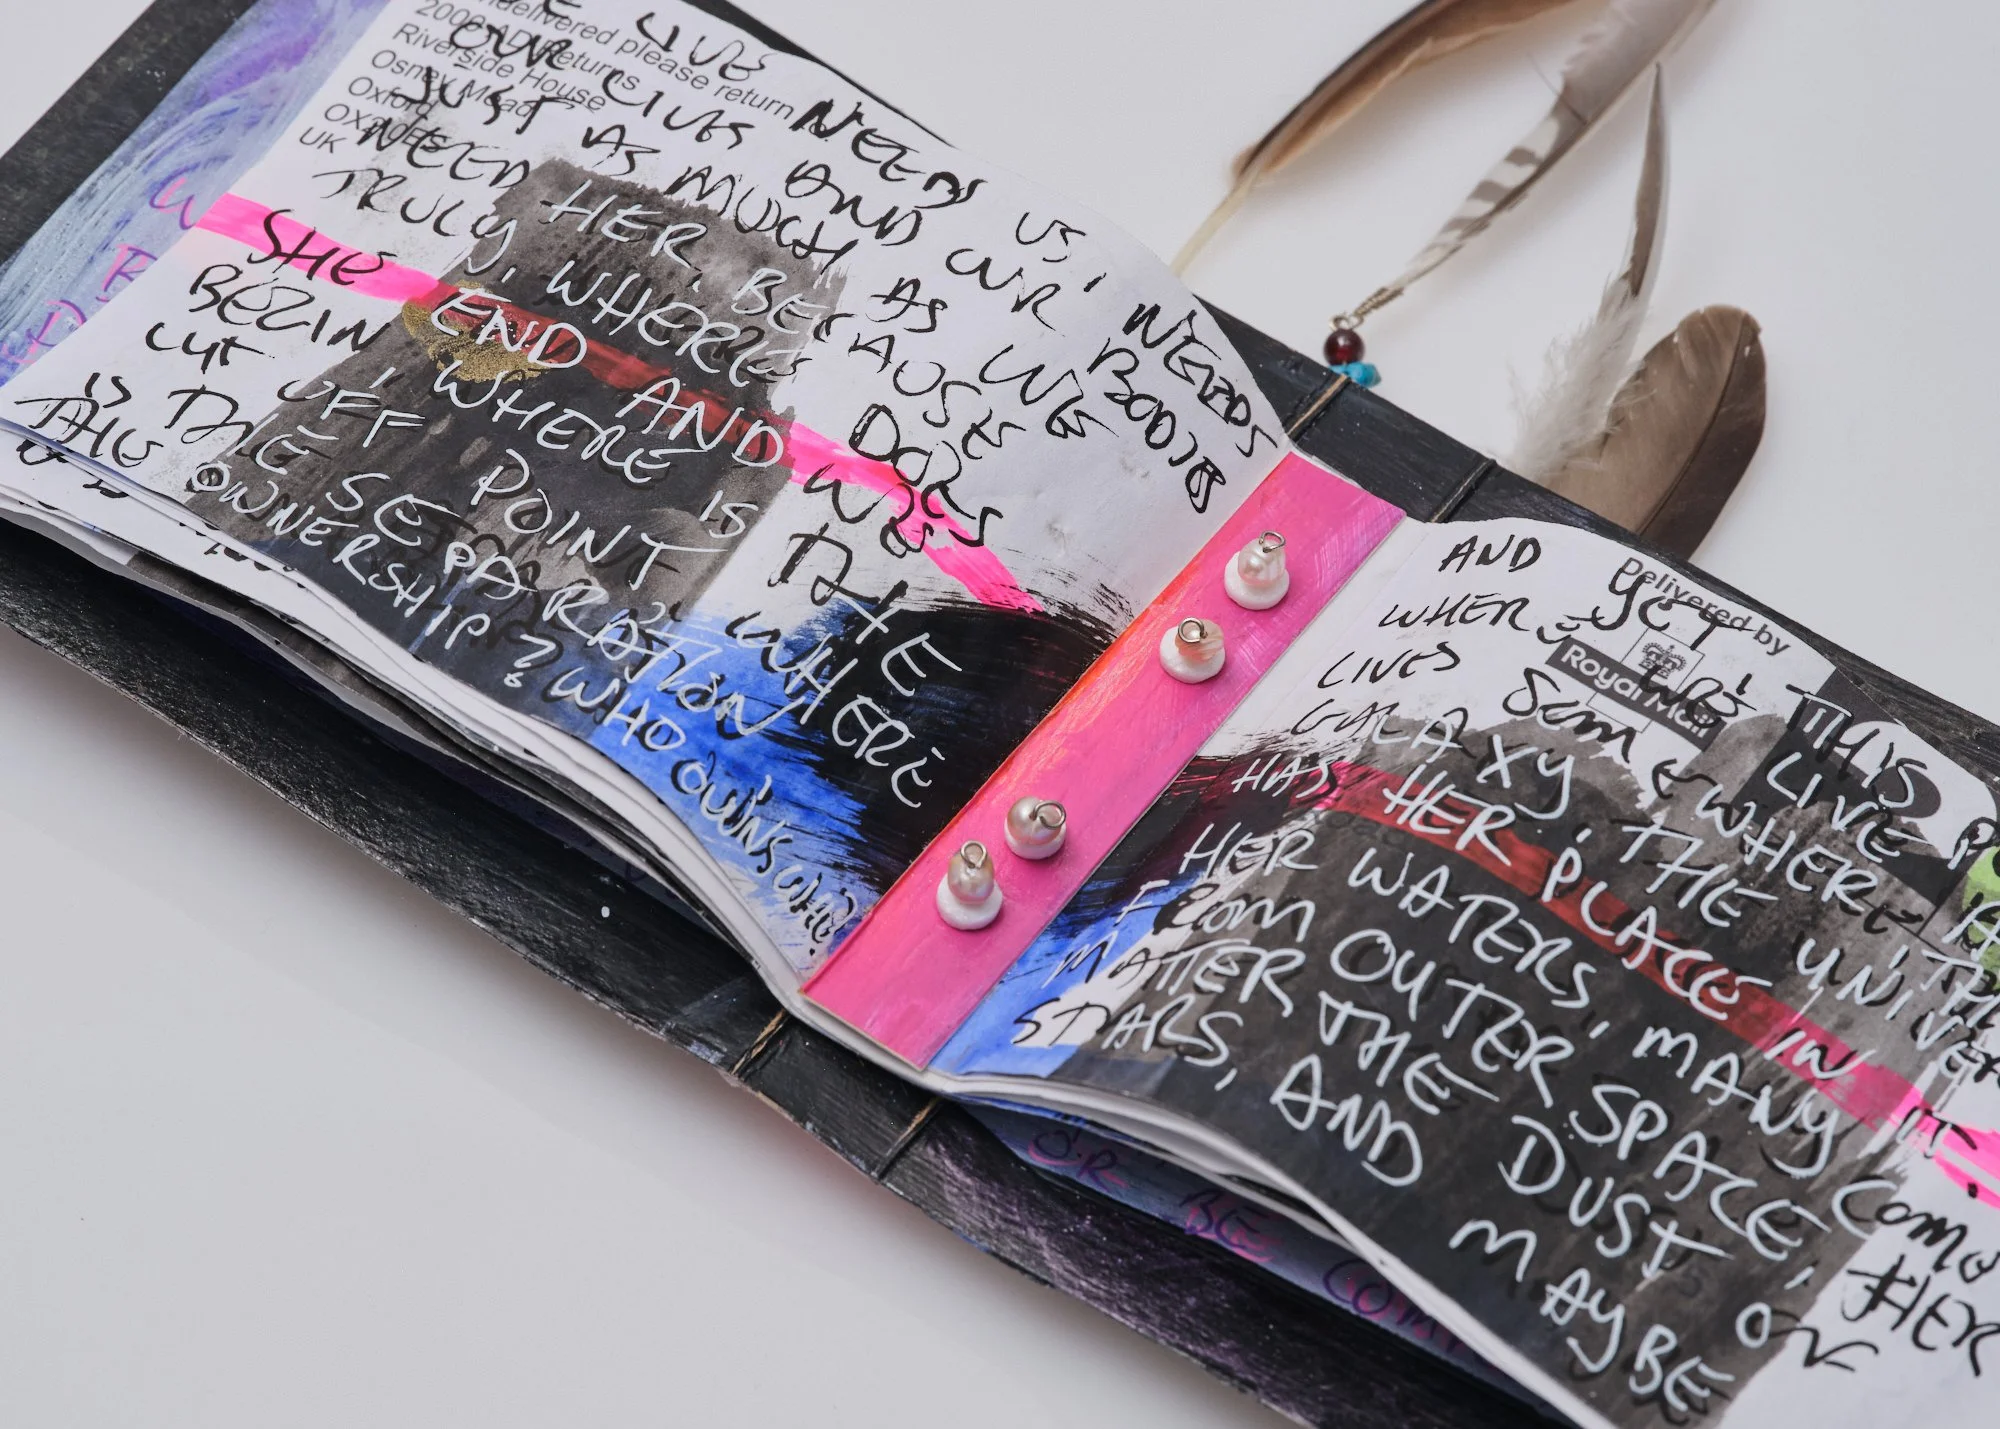 please return
2000 AD Returns
Riverside House
Osney Mead
Oxford
UK
LIVE NEEDS US, NEEDS
OUR LIVES AND OUR BODIES
JUST AS MUCH AS WE
NEED HER, BECAUSE
TRULY, WHERE DOES
SHE END AND WE
BEGIN, WHERE IS THE
CUT OFF POINT, WHERE
IS THE SEPARATION
THIS OWNERSHIP? WHO OWNS WHO?
Delivered by
Royal Mail
AND YET THIS
WHERE WE LIVE
LIVES SOMEWHERE
GALAXY, THE UNIVER
HAS HER PLACE IN IT.
HER WATERS, MANY COME
FROM OUTER SPACE, HER
MATTER THE DUST OF
STARS, AND MAYBE
OR BE